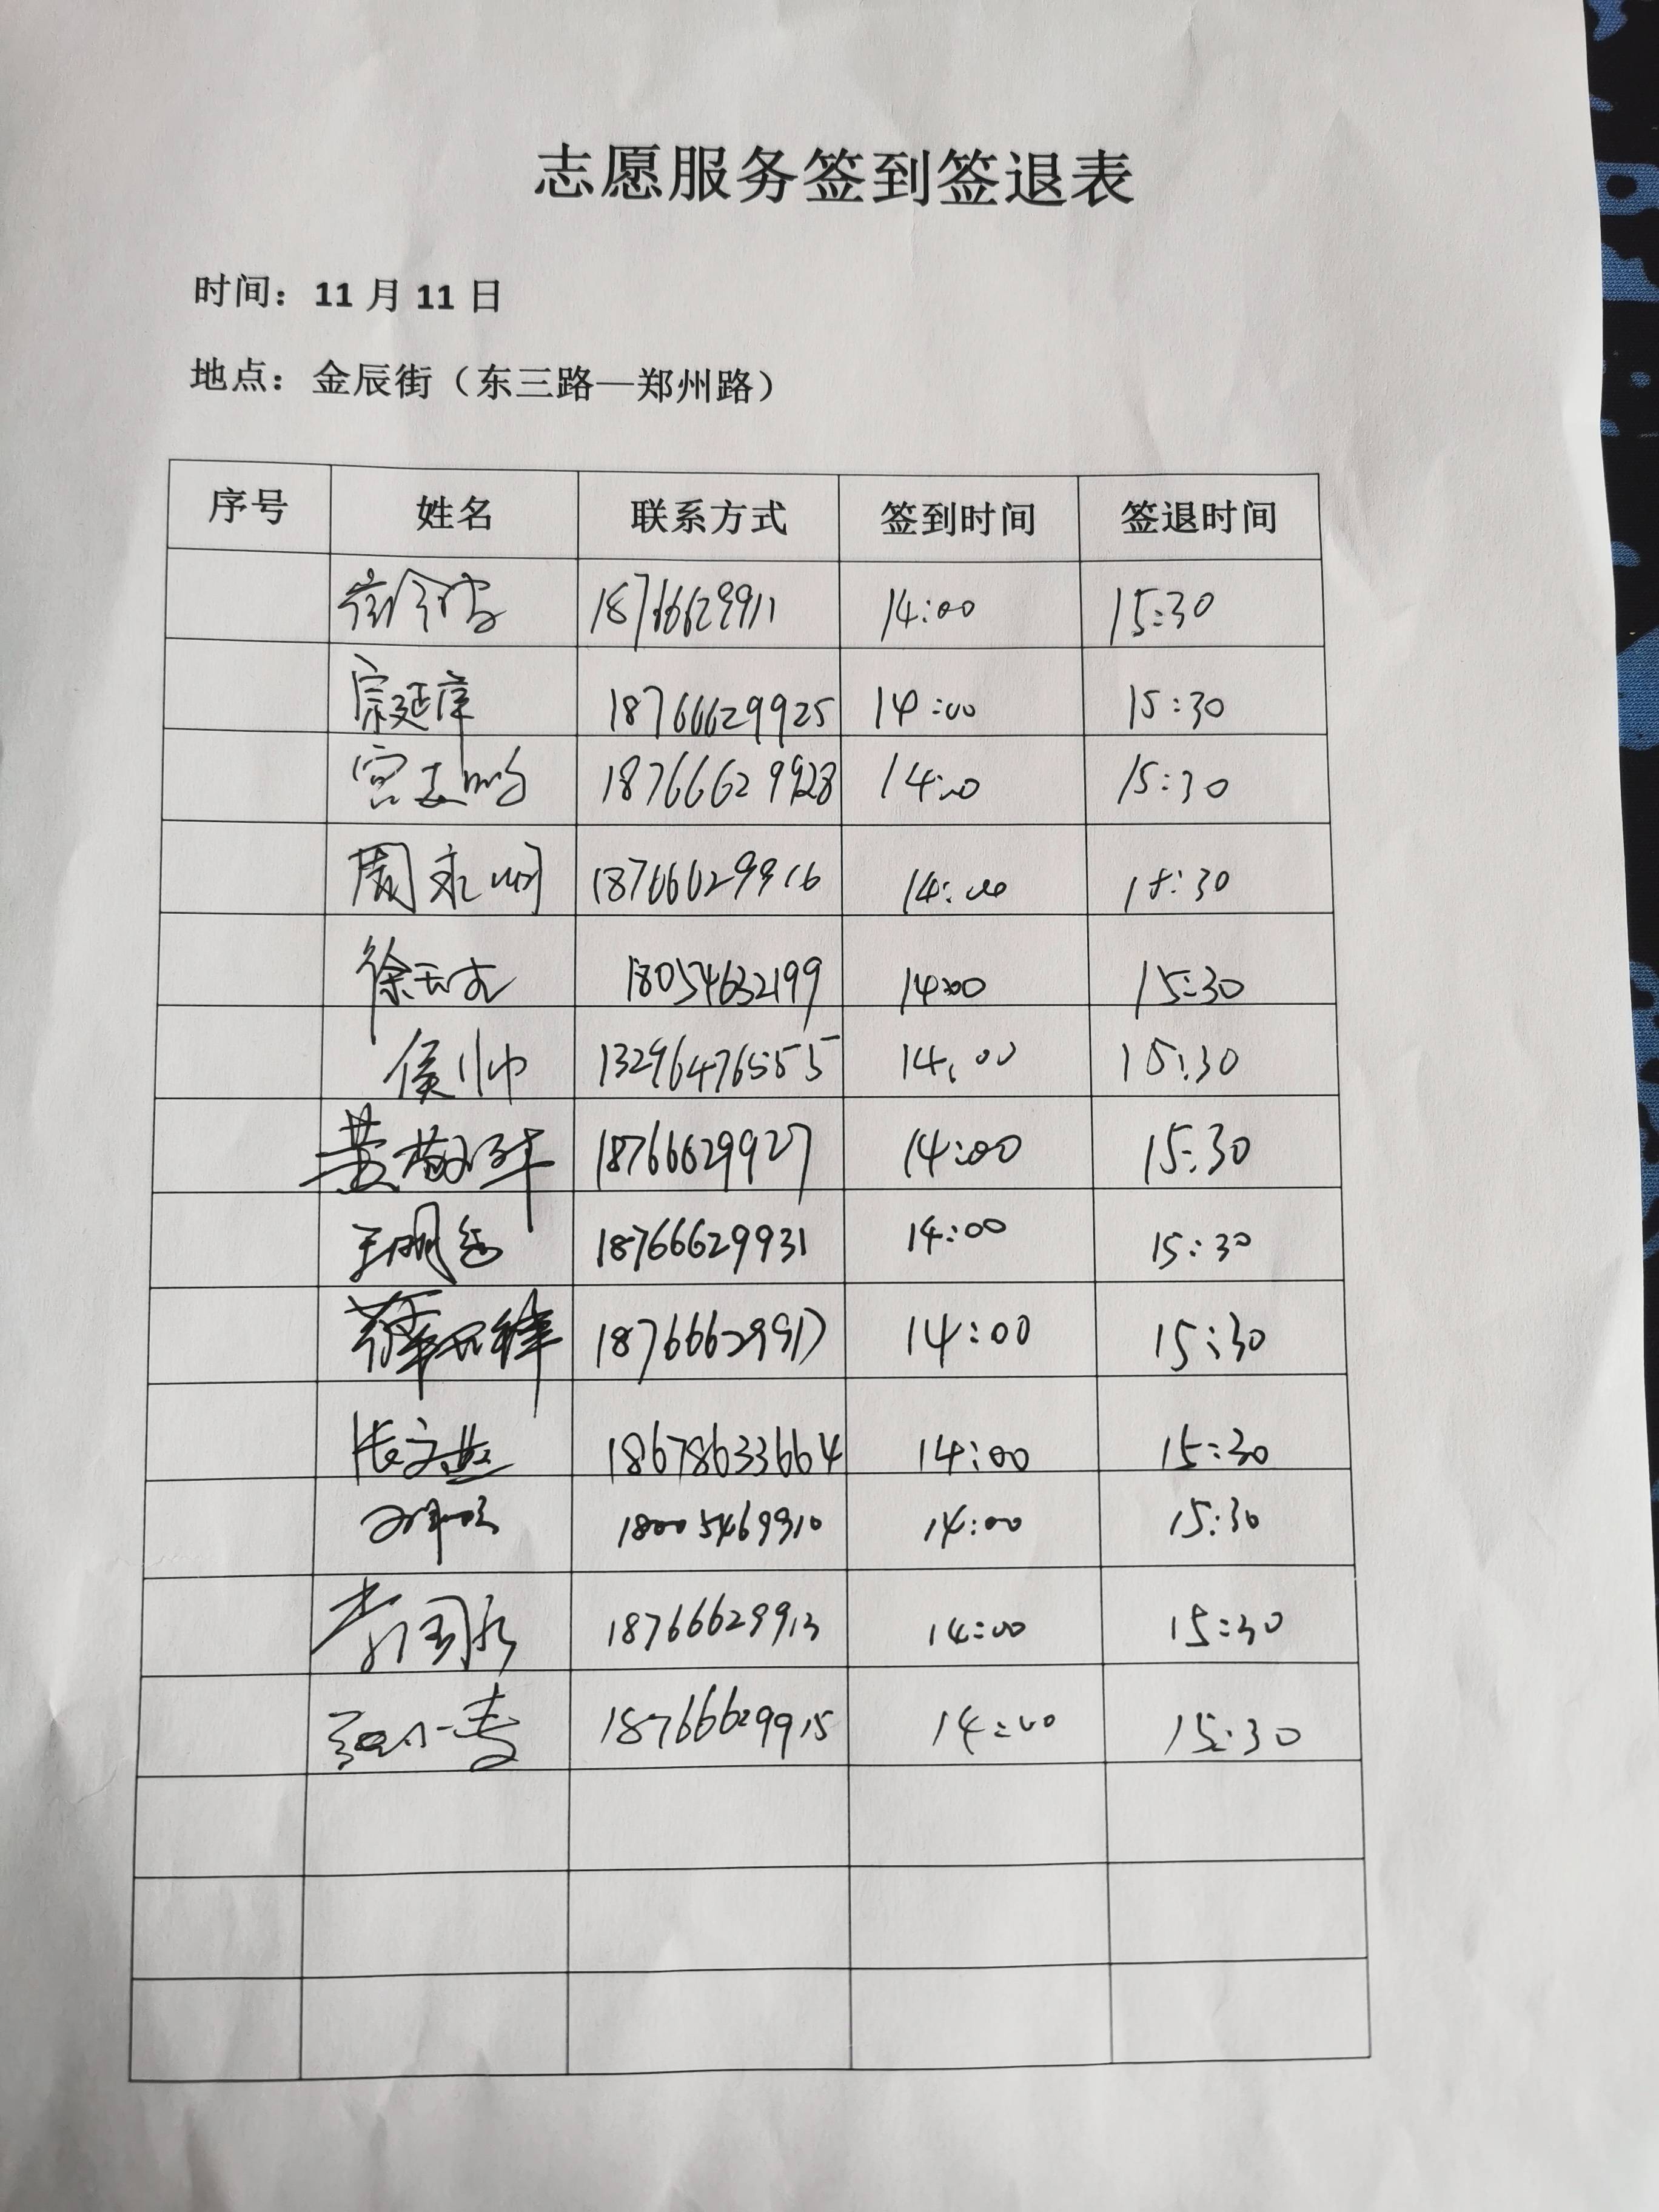 志愿服务签到签退表
时间：11月11日
地点：金辰街（东三路—郑州路）
序号 姓名 联系方式 签到时间 签退时间
18766629911 14:00 15:30
宗延 18766629925 14:00 15:30
宫志鹏 18766629928 14:00 15:30
周永明 18766629916 14:00 15:30
徐 18054632199 14:00 15:30
侯帅 13296476555 14:00 15:30
黄 18766629927 14:00 15:30
王 18766629931 14:00 15:30
18766629917 14:00 15:30
张文 18678633664 14:00 15:30
18005469910 14:00 15:30
18766629913 14:00 15:30
18766629915 14:00 15:30